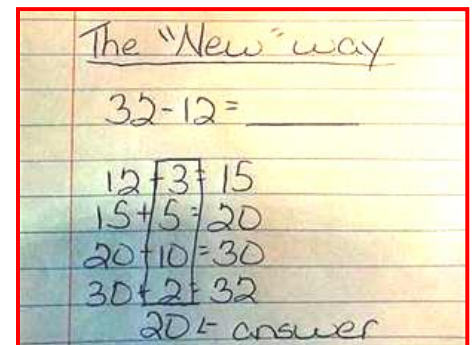 The "New" way
32-12=____
12+3=15
15+5=20
20+10=30
30+2=32
20← answer